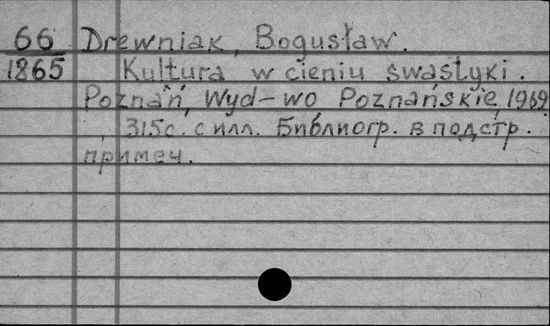 66 Drewniak, Bogusław.
1865 Kultura w cieniu swastyki.
Poznań, Wyd-wo Poznańskie, 1969
315с. с илл. Библиогр. в подстр.
примеч.